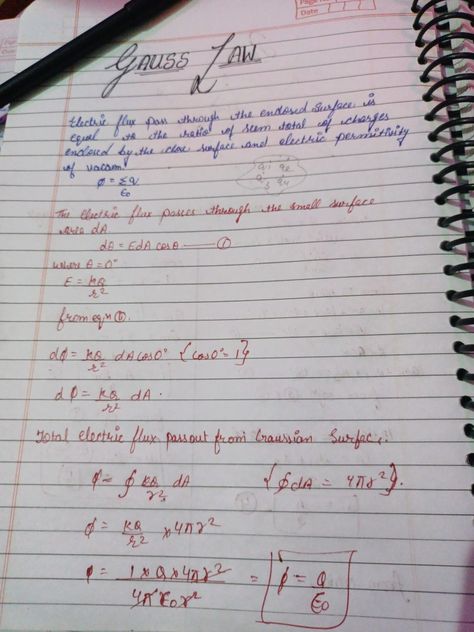 Page No
Date
GAUSS LAW
Electric flux pass through the enclosed surface is
equal to the ratio of sum total of charges
enclosed by the close surface and electric permitivity
of vacum.
ϕ = ΣQ/ε0
q1 q2
q3 q4
The electric flux passes through the small surface
area dA
dA = EdA cosθ —— ①
where θ = 0°
E = KQ/r²
from eqn ①.
dϕ = KQ/r² dA cos0° {cos0° = 1}
dϕ = KQ/r² dA.
Total electric flux passout from Gaussian Surface.
ϕ = ∮ KQ/r² dA {∮dA = 4πr²}.
ϕ = KQ/r² × 4πr²
ϕ = 1 × Q × 4πr² / 4πε0r² = ϕ = Q/ε0